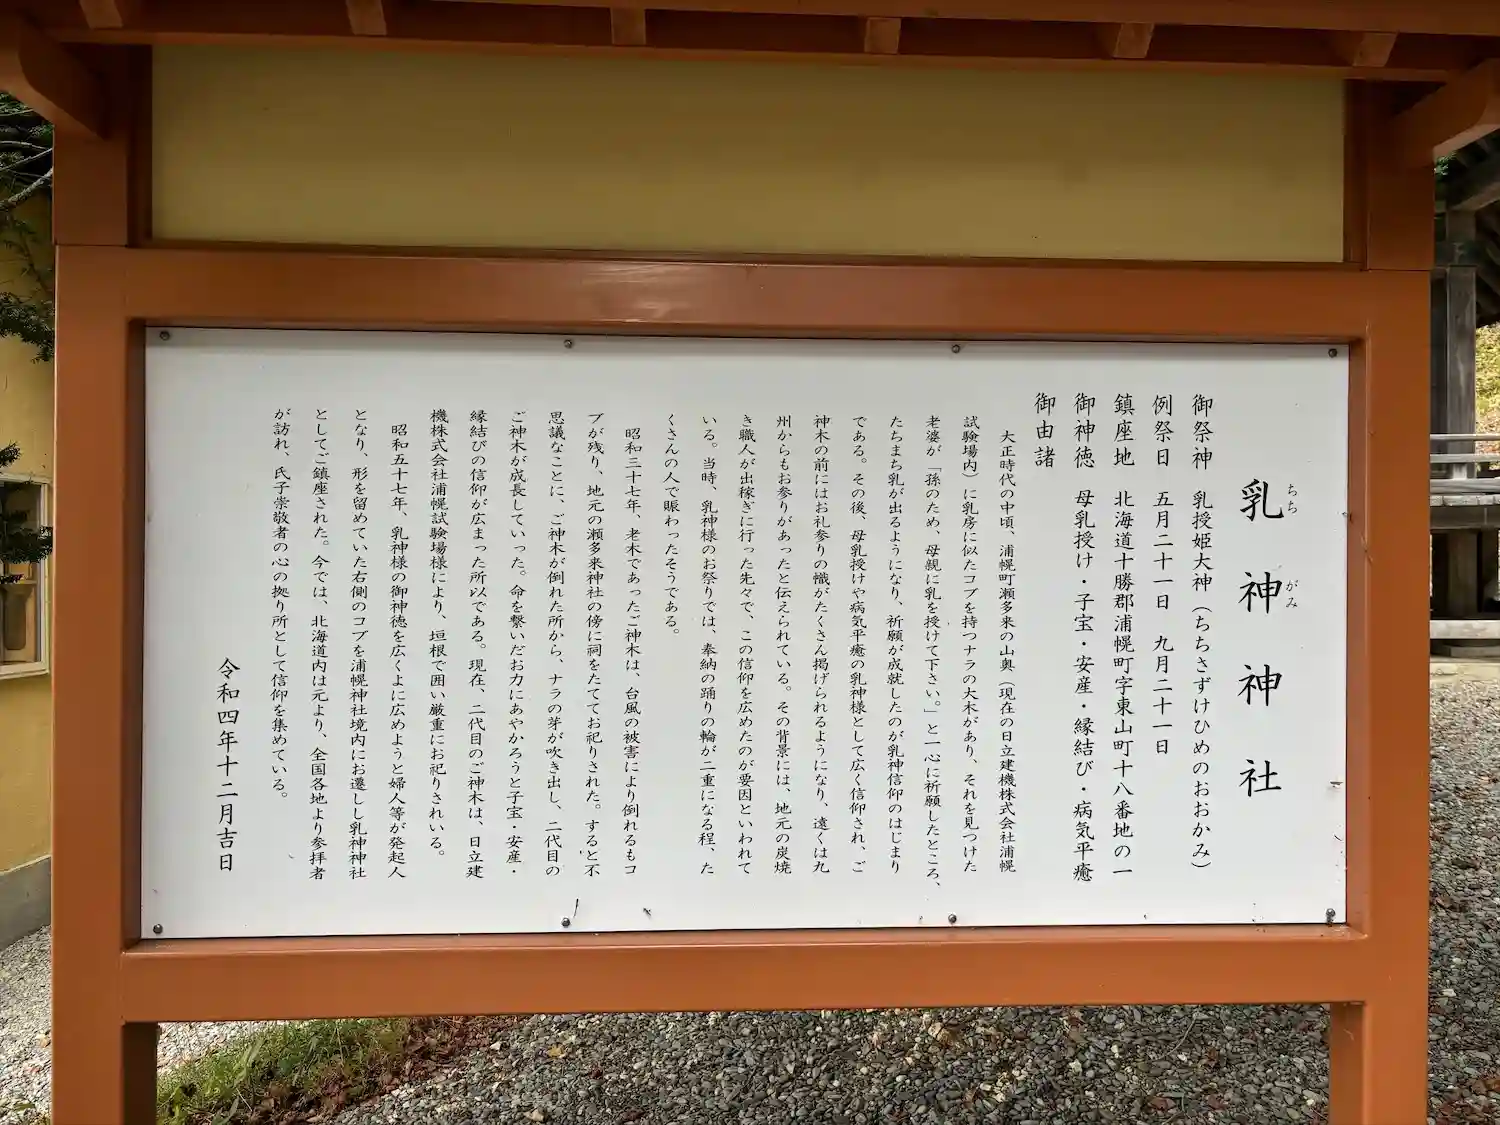 乳神神社
ちち がみ
御祭神 乳授姫大神（ちちさずけひめのおおかみ）
例祭日 五月二十一日 九月二十一日
鎮座地 北海道十勝郡浦幌町字東山町十八番地の一
御神徳 母乳授け・子宝・安産・縁結び・病気平癒
御由諸
大正時代の中頃、浦幌町瀬多来の山奥（現在の日立建機株式会社浦幌
試験場内）に乳房に似たコブを持つナラの大木があり、それを見つけた
老婆が「孫のため、母親に乳を授けて下さい。」と一心に祈願したところ、
たちまち乳が出るようになり、祈願が成就したのが乳神信仰のはじまり
である。その後、母乳授けや病気平癒の乳神様として広く信仰され、ご
神木の前にはお礼参りの幟がたくさん掲げられるようになり、遠くは九
州からもお参りがあったと伝えられている。その背景には、地元の炭焼
き職人が出稼ぎに行った先々で、この信仰を広めたのが要因といわれて
いる。当時、乳神様のお祭りでは、奉納の踊りの輪が二重になる程、た
くさんの人で賑わったそうである。
昭和三十七年、老木であったご神木は、台風の被害により倒れるもコ
ブが残り、地元の瀬多来神社の傍に祠をたててお祀りされた。すると不
思議なことに、ご神木が倒れた所から、ナラの芽が吹き出し、二代目の
ご神木が成長していった。命を繋いだお力にあやかろうと子宝・安産・
縁結びの信仰が広まった所以である。現在、二代目のご神木は、日立建
機株式会社浦幌試験場様により、垣根で囲い厳重にお祀りされいる。
昭和五十七年、乳神様の御神徳を広くよに広めようと婦人等が発起人
となり、形を留めていた右側のコブを浦幌神社境内にお遷しし乳神神社
としてご鎮座された。今では、北海道内は元より、全国各地より参拝者
が訪れ、氏子崇敬者の心の拠り所として信仰を集めている。
令和四年十二月吉日